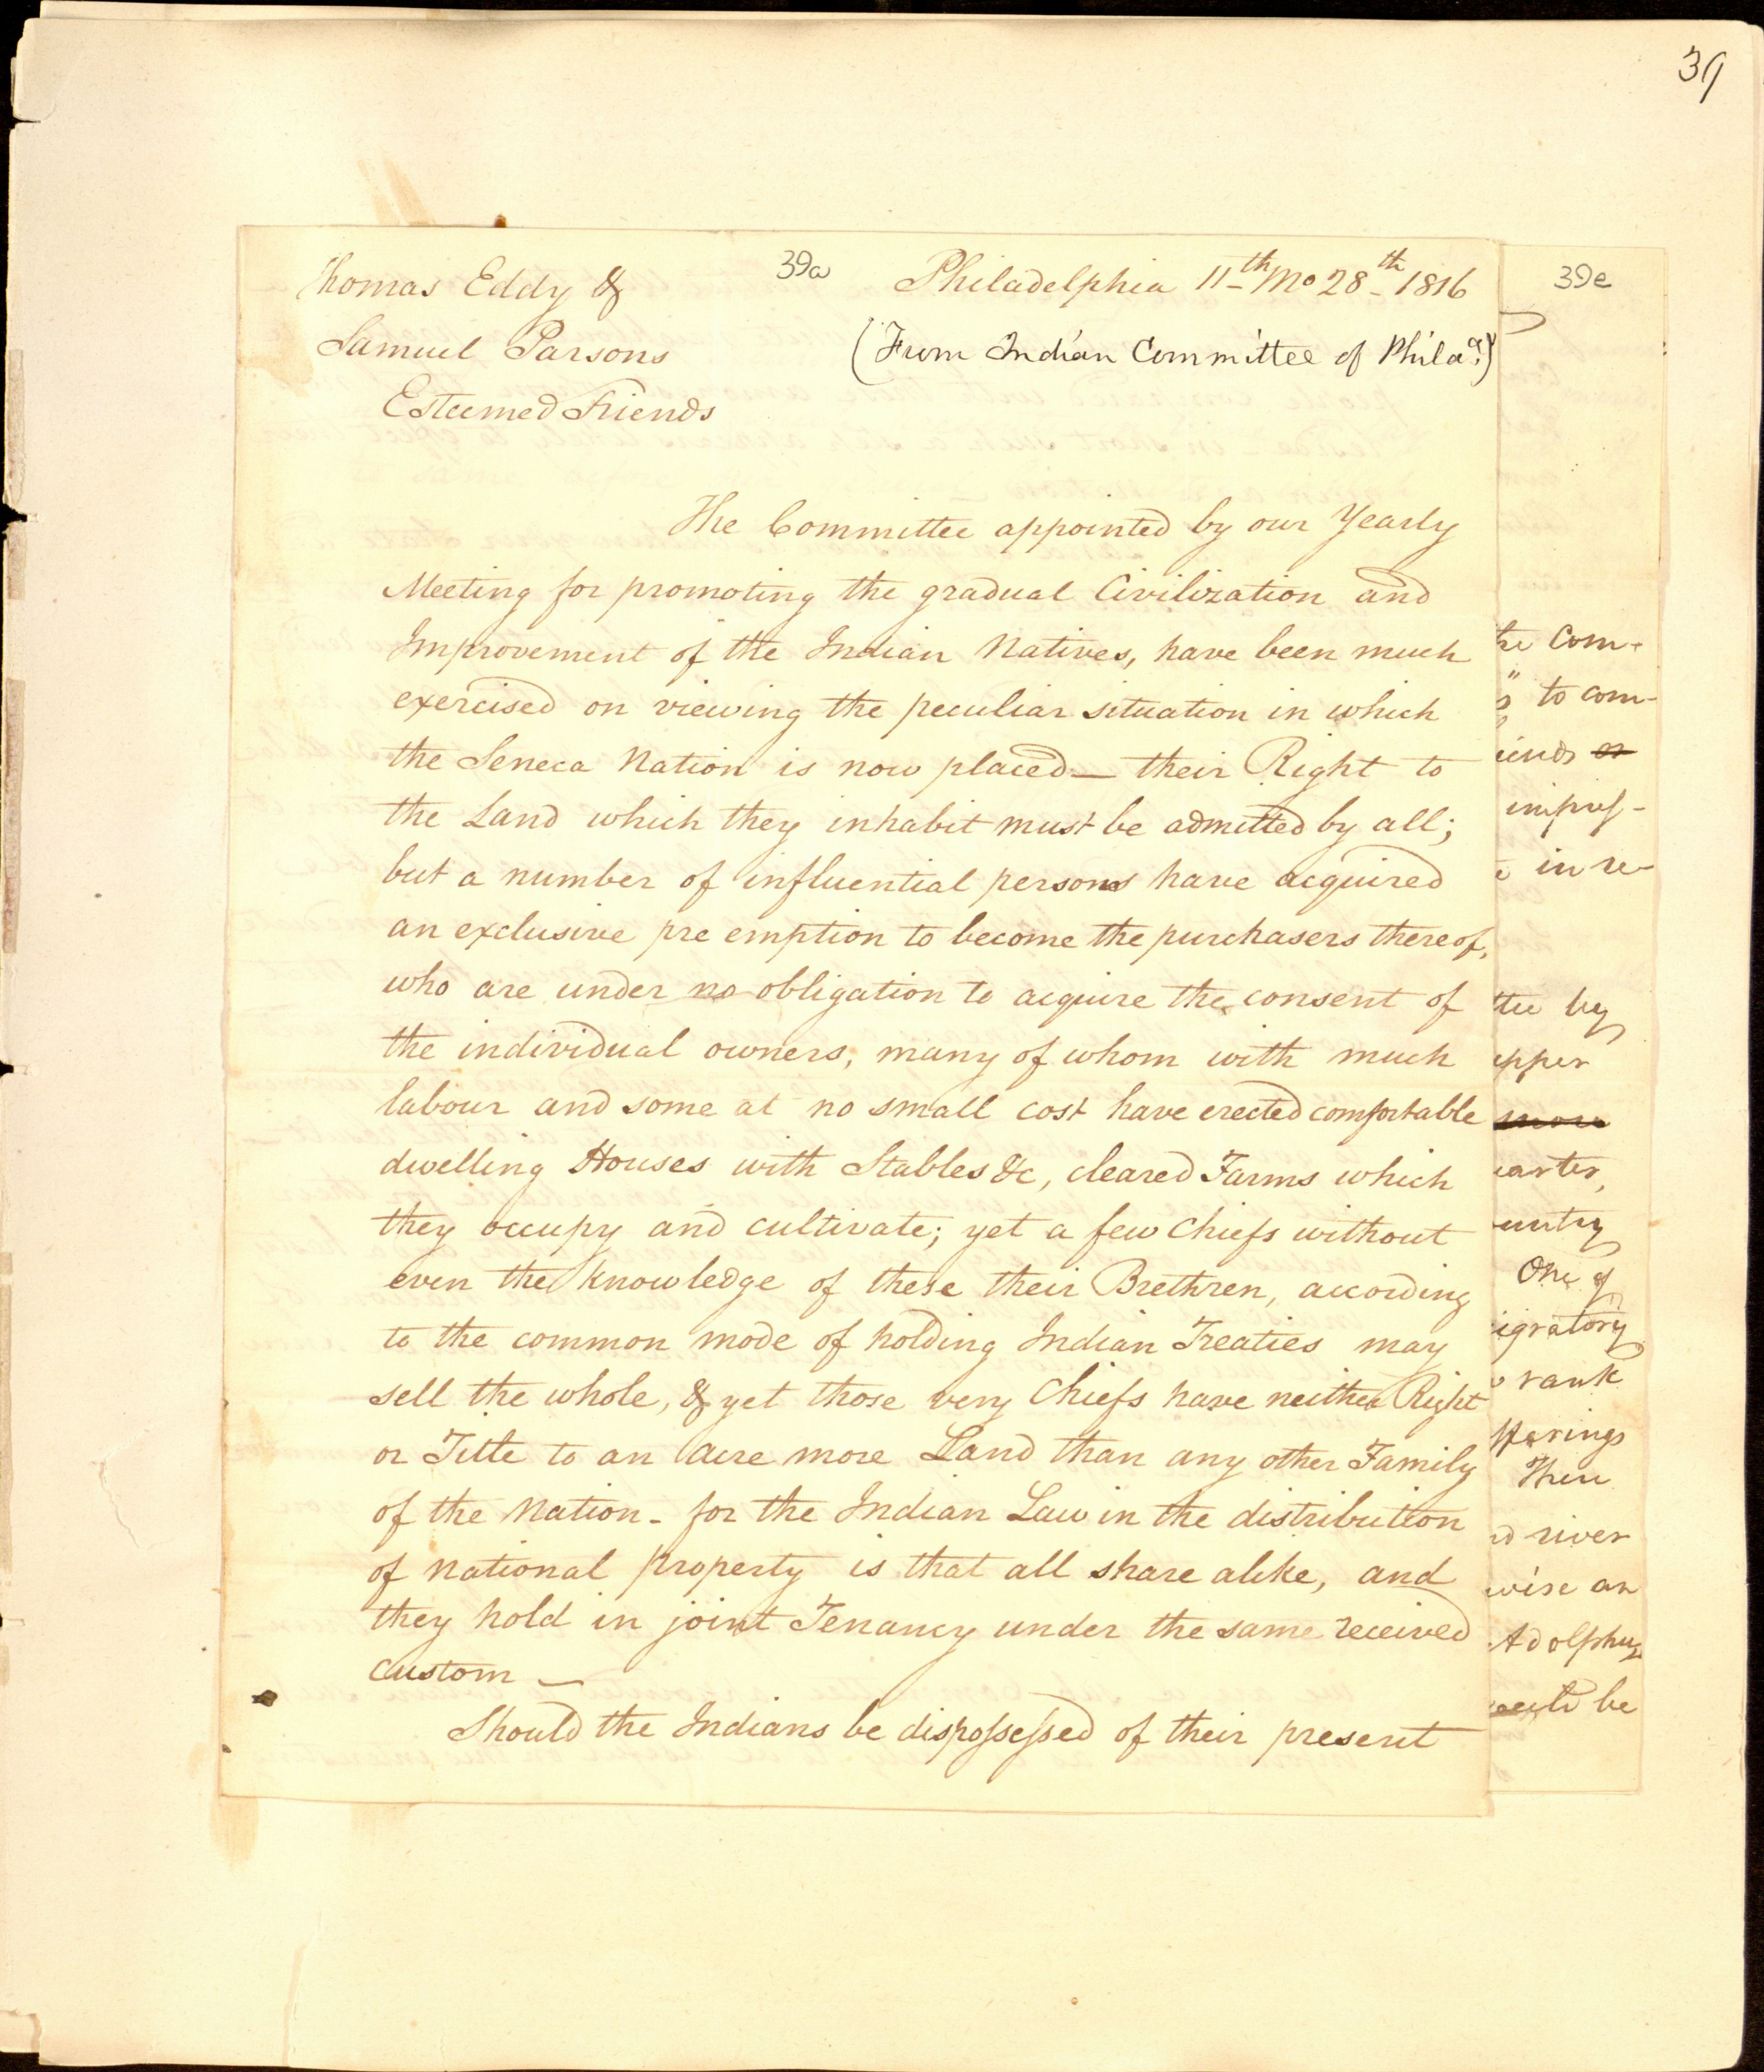 39
39a
Thomas Eddy &
Philadelphia 11th Mo 28th 1816
Samuel Parsons
(From Indian Committee of Phila.)
Esteemed Friends
The Committee appointed by our Yearly
Meeting for promoting the gradual Civilization and
Improvement of the Indian Natives, have been much
exercised on viewing the peculiar situation in which
the Seneca Nation is now placed — their Right to
the Land which they inhabit must be admitted by all;
but a number of influential persons have acquired
an exclusive pre emption to become the purchasers thereof,
who are under no obligation to acquire the consent of
the individual owners, many of whom with much
labour and some at no small cost have erected comfortable
dwelling Houses with Stables &c, cleared Farms which
they occupy and cultivate; yet a few Chiefs without
even the knowledge of these their Brethren, according
to the common mode of holding Indian Treaties may
sell the whole, & yet those very Chiefs have neither Right
or Title to an Acre more Land than any other Family
of the Nation - for the Indian Law in the distribution
of National property is that all share alike, and
they hold in joint Tenancy under the same received
custom —
Should the Indians be dispossessed of their present
39e
he Com-
to com-
iends or
imposs-
in re-
tee by
upper
more
uarter,
untry
One of
igratory
rank
fferings
There
d river
wise an
Adolphus
be